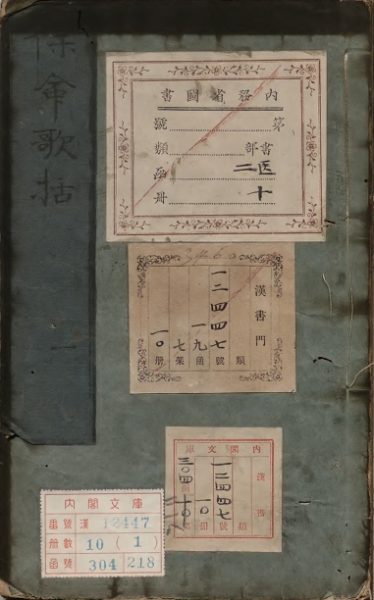 保命歌括
內務省圖書
第 號
書部 類
医
二 函
十 冊
漢書門
類
一二四四七號
一九函
七架
一〇冊
內閣文庫
漢書
類
一二四四七號
一〇冊
內閣文庫
番號 漢 12447
册數 10 (1)
函號 304 218